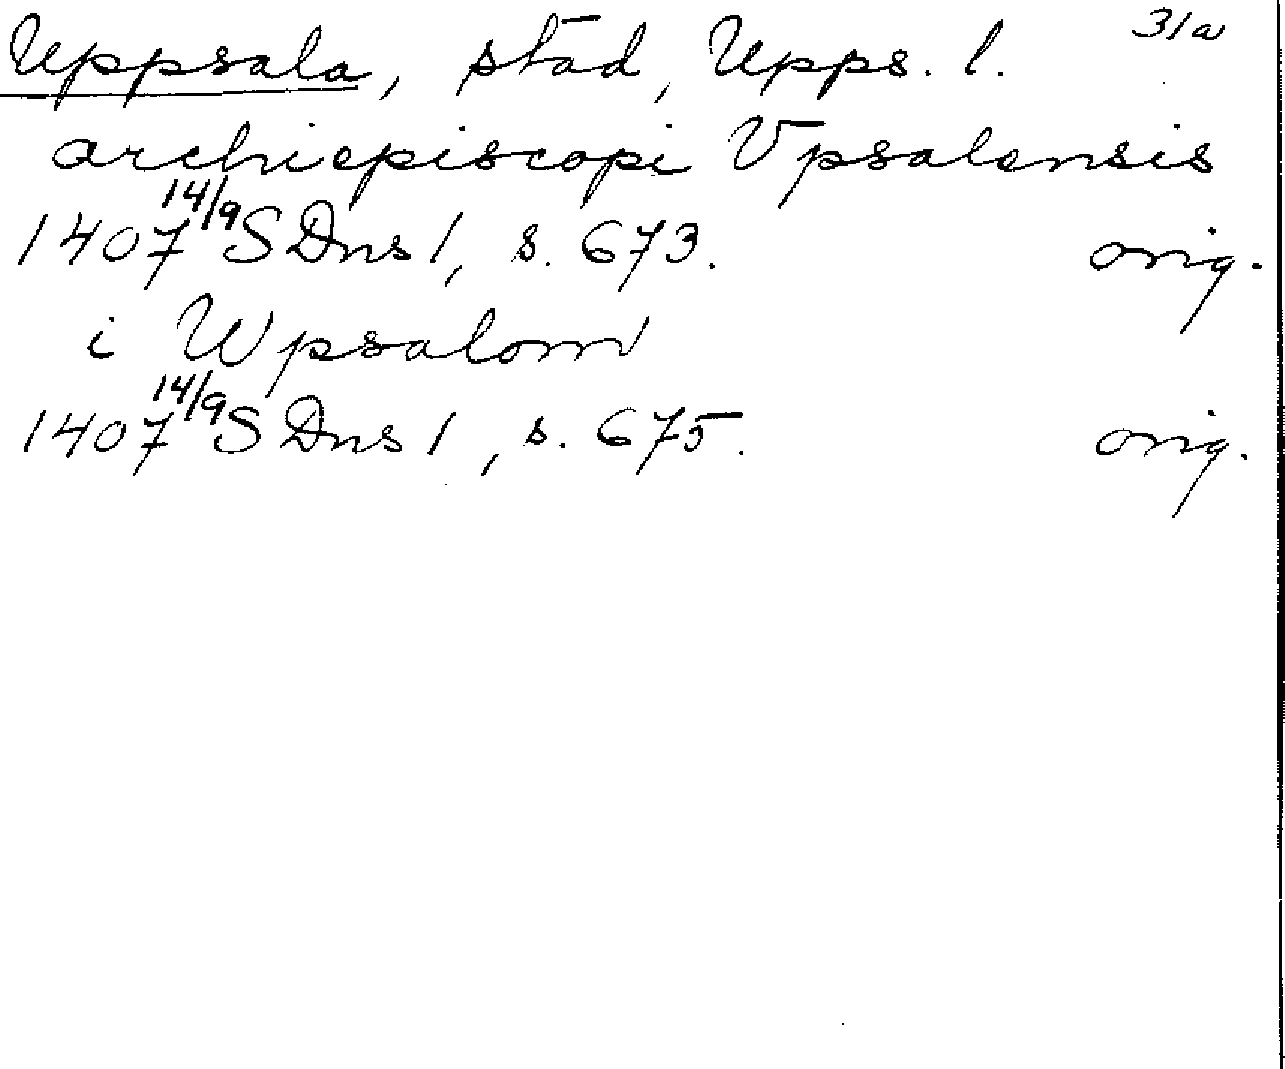 Uppsala, stad, Upps. l. 31a
archiepiscopi Vpsalensis
1407 14/9 SDns 1, s. 673. orig.
i Wpsalom
1407 14/9 SDns 1, s. 675. orig.